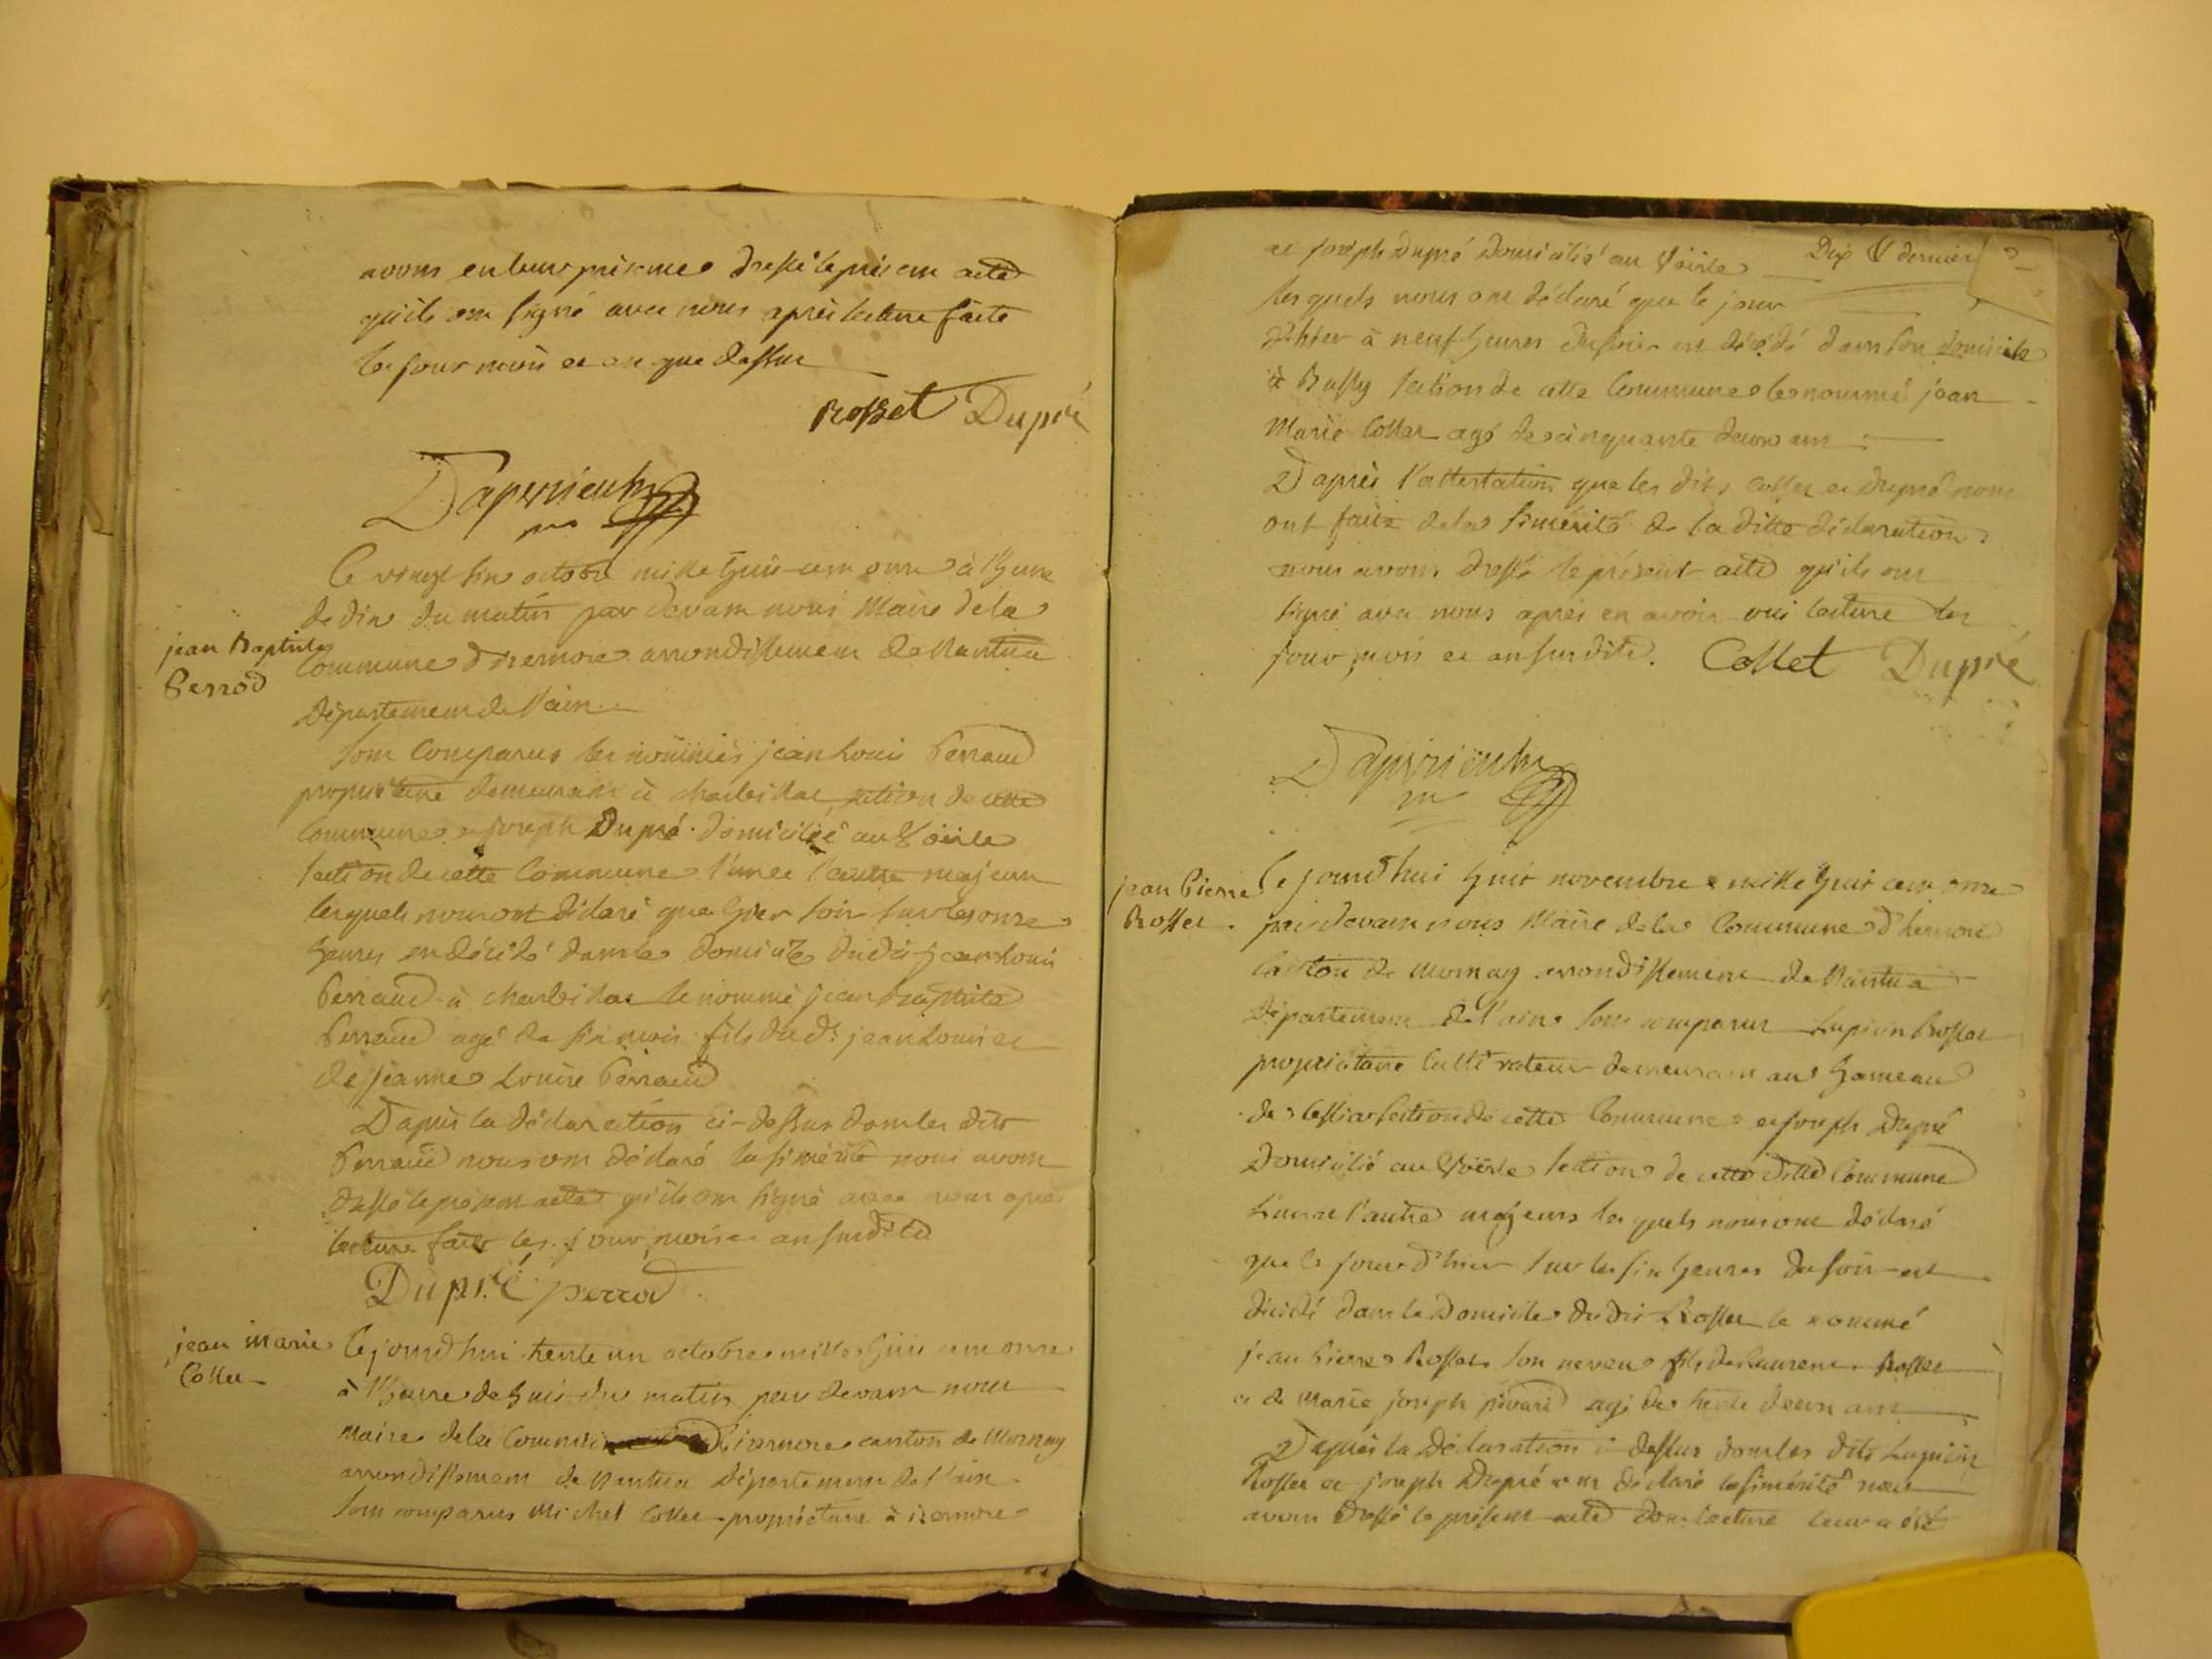 avons en leur présence dressé le présent acte
qu'ils ont signé avec nous après lecture faite
les jour mois et an que dessus
Rosset Dupré
Dapvrieulx
Ce vingt six octobre mille huit cent onze à l'heure
de dix du matin par devant nous Maire de la
jean Baptiste
Perrod
Commune d'izernore arrondissement de Nantua
département de l'ain
sont Comparus les nommés jean Louis Perraud
propriétaire demeurant à charbillat section de cette
Commune et joseph Dupré domicilié au Voërle
section de cette Commune l'un et l'autre majeurs
lesquels nous ont déclaré que hier soir sur les onze
heures est décédé dans le domicile dudit jean Louis
Perraud à charbillat le nommé jean Baptiste
Perraud agé de six mois fils du dt jean Louis et
de jeanne Louise Perraud
D'après la déclaration ci-dessus dont les dits
Perraud nous ont déclaré la sincérité nous avons
dressé le présent acte qu'ils ont signé avec nous après
lecture faite les jour, mois et an susdits
Dupré perrod
jean marie
Collet
Cejourd'hui trente un octobre mille huit cent onze
à l'heure de huit du matin par devant nous
Maire de la Commune d'izernore canton de Mornay
arrondissement de Nantua département de l'ain
sont comparus Michel Collet propriétaire à izernore
et joseph Dupré domicilié au Voërle Dix & dernier
lesquels nous ont déclaré que le jour
d'hier à neuf heures du soir est décédé dans son domicile
à Bussy section de cette Commune le nommé jean
Marie Collet agé de cinquante deux ans
D'après l'attestation que les dits Collet et Dupré nous
ont faite de la sincérité de la ditte déclaration
nous avons dressé le présent acte qu'ils ont
signé avec nous après en avoir oui lecture les
jour, mois et an susdits. Collet Dupré
Dapvrieulx
jean Pierre
Rosset
Cejourd'hui huit novembre mille huit cent onze
par devant nous Maire de la Commune d'izernore
Canton de Mornay arrondissement de Nantua
département de l'ain sont comparus Lupicin Rosset
propriétaire Cultivateur demeurant au hameau
de section de cette Commune et joseph Dupré
domicilié au Voërle section de cette ditte Commune
L'un et l'autre majeurs lesquels nous ont déclaré
que le jour d'hier sur les six heures du soir est
décédé dans le Domicile du dit Rosset le nommé
jean Pierre Rosset son neveu fils de Laurent Rosset
et de Marie joseph agé de trente deux ans
D'après la Déclaration ci dessus dont les dits Lupicin
Rosset et joseph Dupré ont déclaré la sincérité nous
avons dressé le présent acte dont lecture leur a été